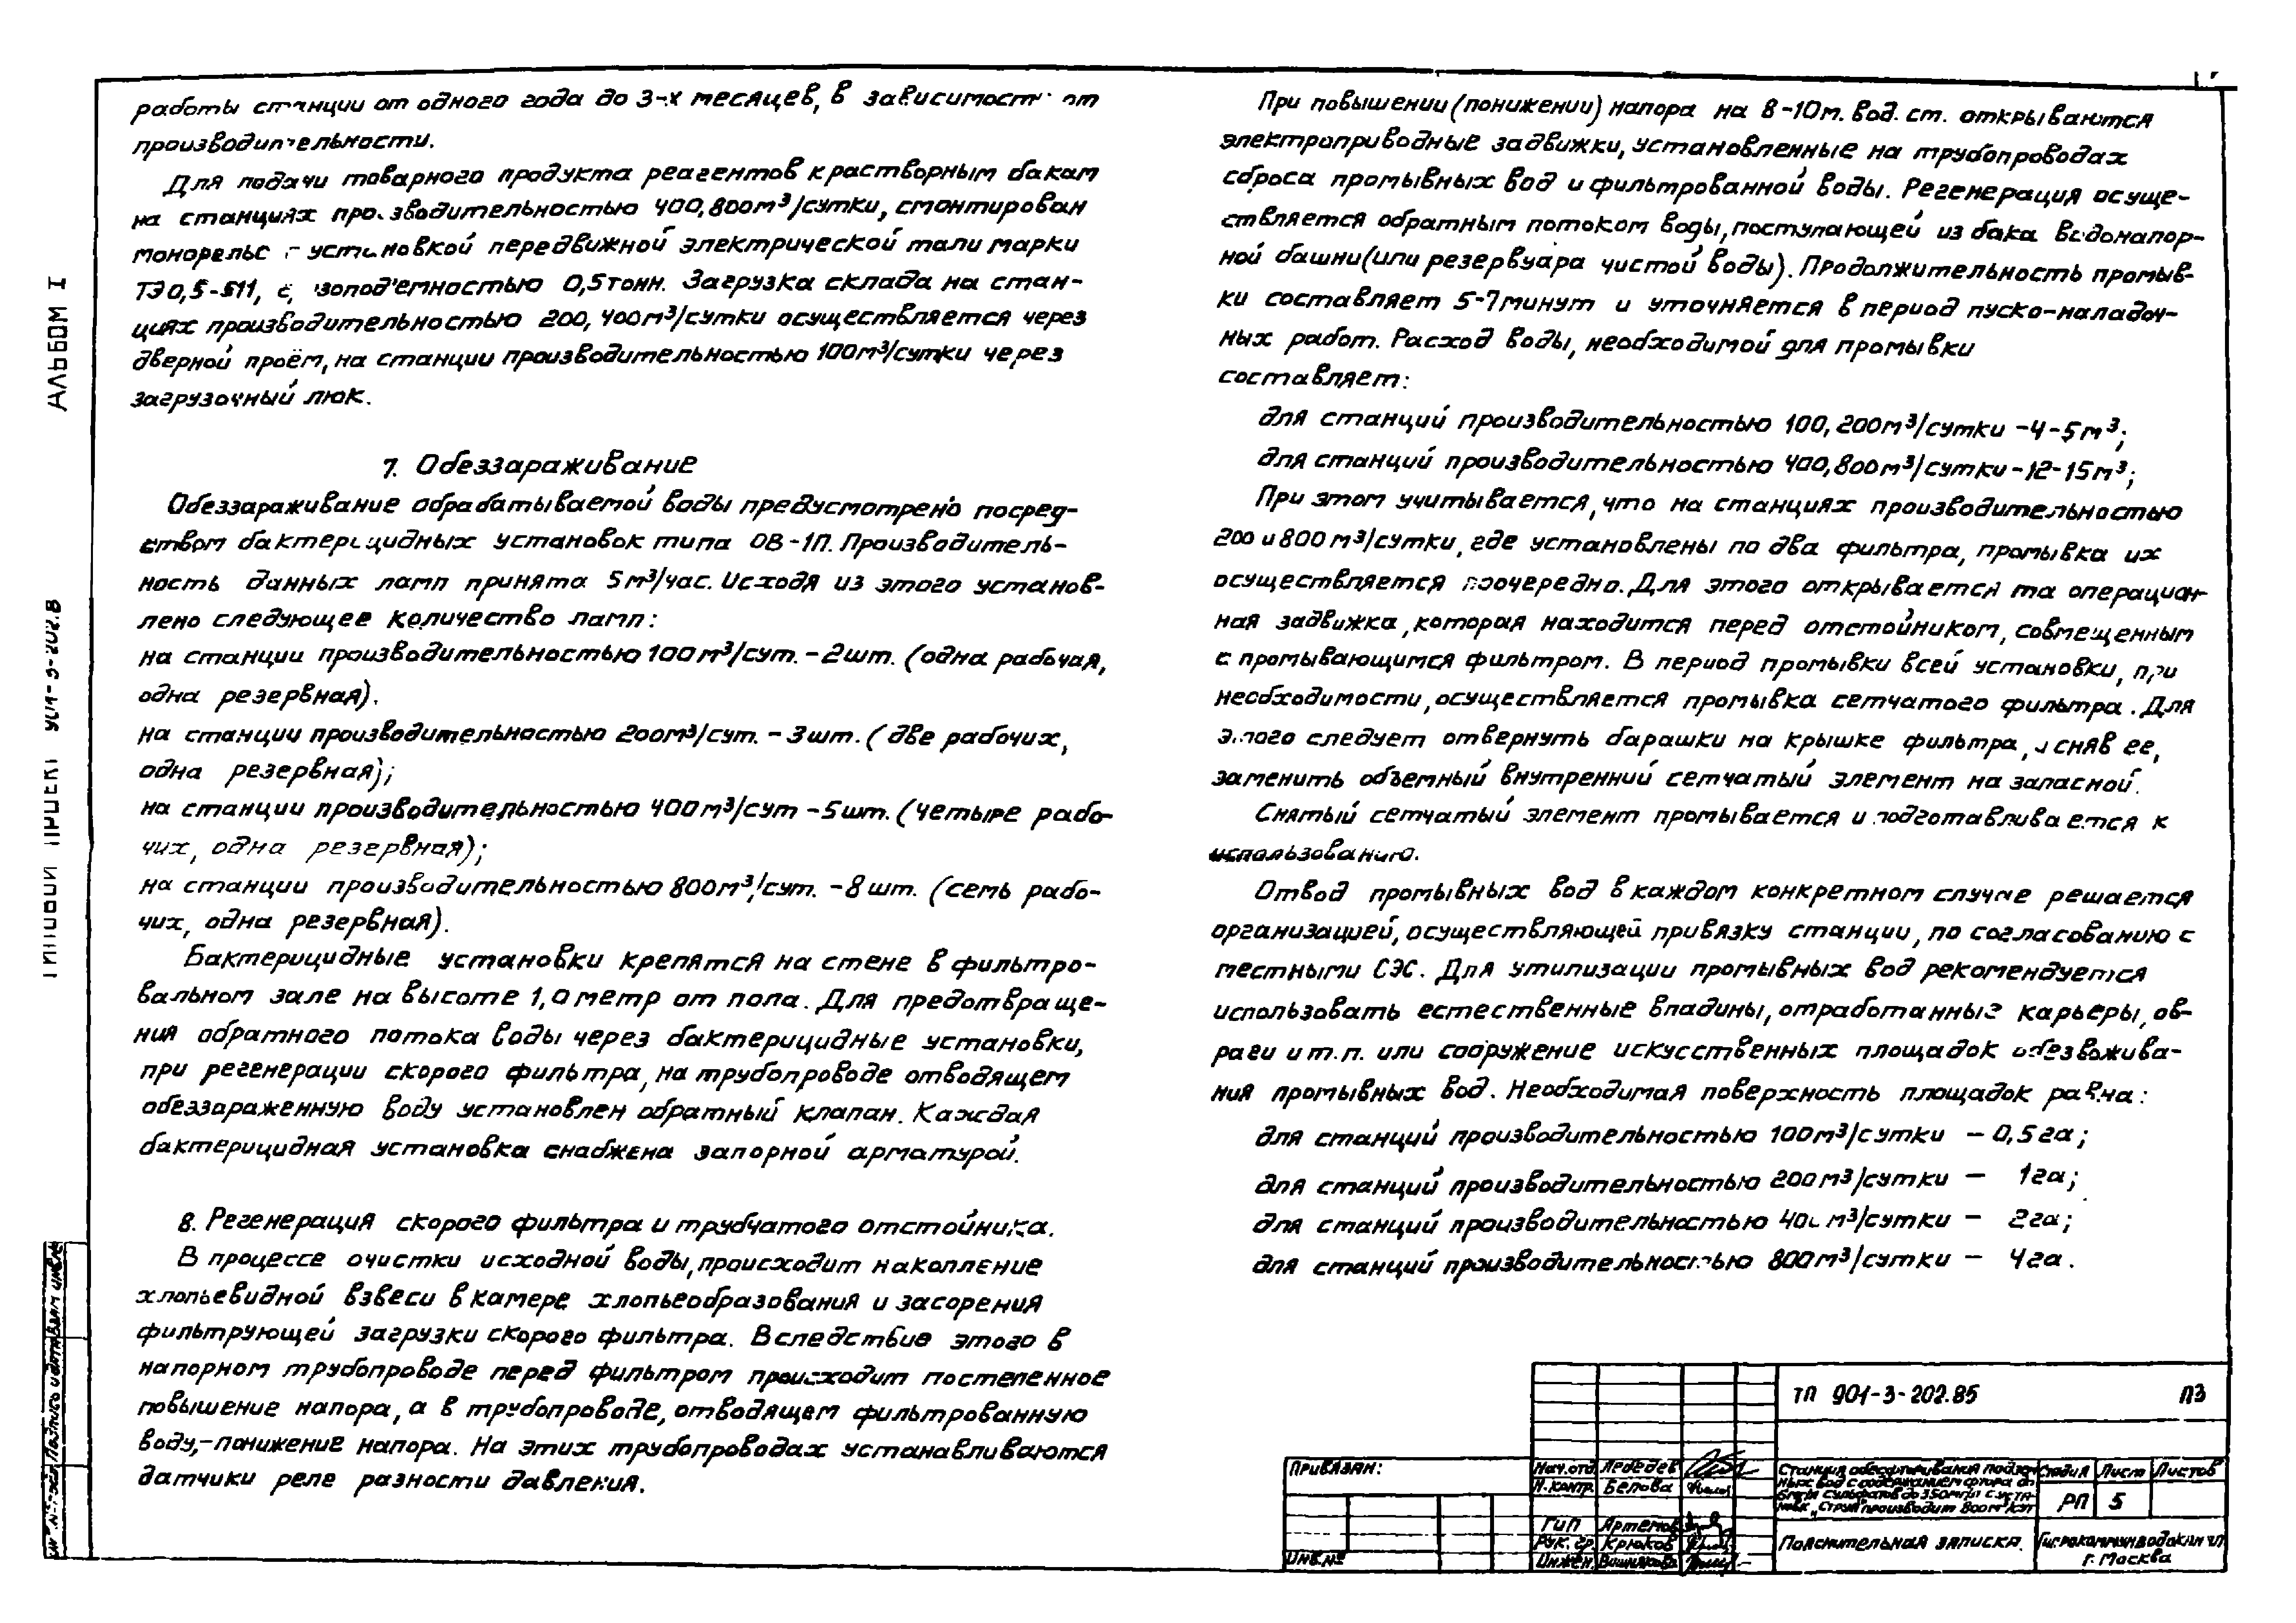 работы станции от одного года до 3-х месяцев, в зависимости от
производительности.
Для подачи товарного продукта реагентов к растворным бакам
на станциях производительностью 400,800м³/сутки, смонтирован
монорельс с установкой передвижной электрической тали марки
ТЭ0,5-511, с грузоподъемностью 0,5тонн. Загрузка склада на стан-
циях производительностью 200,400м³/сутки осуществляется через
дверной проём, на станции производительностью 100м³/сутки через
загрузочный люк.
7. Обеззараживание
Обеззараживание обрабатываемой воды предусмотрено посред-
ством бактерицидных установок типа ОВ-1П. Производитель-
ность данных ламп принята 5м³/час. Исходя из этого установ-
лено следующее количество ламп:
на станции производительностью 100м³/сут. - 2шт. (одна рабочая,
одна резервная).
на станции производительностью 200м³/сут. - 3шт. (две рабочих,
одна резервная);
на станции производительностью 400м³/сут - 5шт. (четыре рабо-
чих, одна резервная);
на станции производительностью 800м³/сут. - 8шт. (семь рабо-
чих, одна резервная).
Бактерицидные установки крепятся на стене в фильтро-
вальном зале на высоте 1,0метр от пола. Для предотвраще-
ния обратного потока воды через бактерицидные установки,
при регенерации скорого фильтра, на трубопроводе отводящем
обеззараженную воду установлен обратный клапан. Каждая
бактерицидная установка снабжена запорной арматурой.
8. Регенерация скорого фильтра и трубчатого отстойника.
В процессе очистки исходной воды, происходит накопление
хлопьевидной взвеси в камере хлопьеобразования и засорения
фильтрующей загрузки скорого фильтра. Вследствие этого в
напорном трубопроводе перед фильтром происходит постепенное
повышение напора, а в трубопроводе, отводящем фильтрованную
воду,-понижение напора. На этих трубопроводах устанавливаются
датчики реле разности давления.
При повышении (понижении) напора на 8-10м. вод. ст. открываются
электроприводные задвижки, установленные на трубопроводах
сброса промывных вод и фильтрованной воды. Регенерация осуще-
ствляется обратным потоком воды, поступающей из бака водонапор-
ной башни (или резервуара чистой воды). Продолжительность промыв-
ки составляет 5-7минут и уточняется в период пуско-наладоч-
ных работ. Расход воды, необходимой для промывки
составляет:
для станций производительностью 100, 200м³/сутки -4-5м³;
для станций производительностью 400,800м³/сутки-12-15м³;
При этом учитывается, что на станциях производительностью
200 и 800м³/сутки, где установлены по два фильтра, промывка их
осуществляется поочередно. Для этого открывается та операцион-
ная задвижка, которая находится перед отстойником, совмещенным
с промывающимся фильтром. В период промывки всей установки, при
необходимости, осуществляется промывка сетчатого фильтра. Для
этого следует отвернуть барашки на крышке фильтра, и сняв ее,
заменить объемный внутренний сетчатый элемент на запасной.
Снятый сетчатый элемент промывается и подготавливается к
использованию.
Отвод промывных вод в каждом конкретном случае решается
организацией, осуществляющей привязку станции, по согласованию с
местными СЭС. Для утилизации промывных вод рекомендуется
использовать естественные впадины, отработанные карьеры, ов-
раги и т.п. или сооружение искусственных площадок обезвожива-
ния промывных вод. Необходимая поверхность площадок равна:
для станций производительностью 100м³/сутки - 0,5га;
для станций производительностью 200м³/сутки - 1га;
для станций производительностью 400м³/сутки - 2га;
для станций производительностью 800м³/сутки - 4га.
АЛЬБОМ I
ТИПОВОЙ ПРОЕКТ 901-3-202.85
Подпись и дата Взам инв №
ТП 901-3-202.85 ПЗ
Привязан:
Инв.№
Нач.отд Лебедев
Н.контр. Белова
ГИП Артемов
Рук. гр. Крюков
Инжен.
Станция обесфторивания подзем-
ных вод с содержанием фтора до
сульфатов до 350мг/л с уста-
новк. "Струя" производит 800м³/сут
Стадия Лист Листов
РП 5
Пояснительная записка.
Гипрокоммунводоканал
г. Москва